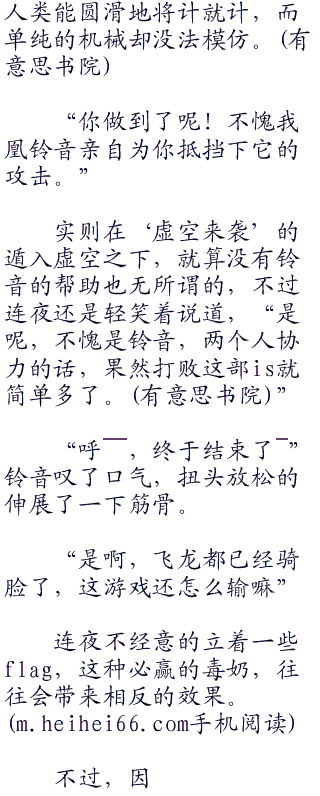 人类能圆滑地将计就计，而
单纯的机械却没法模仿。(有
意思书院)
“你做到了呢！不愧我
凰铃音亲自为你抵挡下它的
攻击。”
实则在‘虚空来袭’的
遁入虚空之下，就算没有铃
音的帮助也无所谓的，不过
连夜还是轻笑着说道，“是
呢，不愧是铃音，两个人协
力的话，果然打败这部is就
简单多了。(有意思书院)”
“呼——，终于结束了-”
铃音叹了口气，扭头放松的
伸展了一下筋骨。
“是啊，飞龙都已经骑
脸了，这游戏还怎么输嘛”
连夜不经意的立着一些
flag，这种必赢的毒奶，往
往会带来相反的效果。
(m.heihei66.com手机阅读)
不过，因